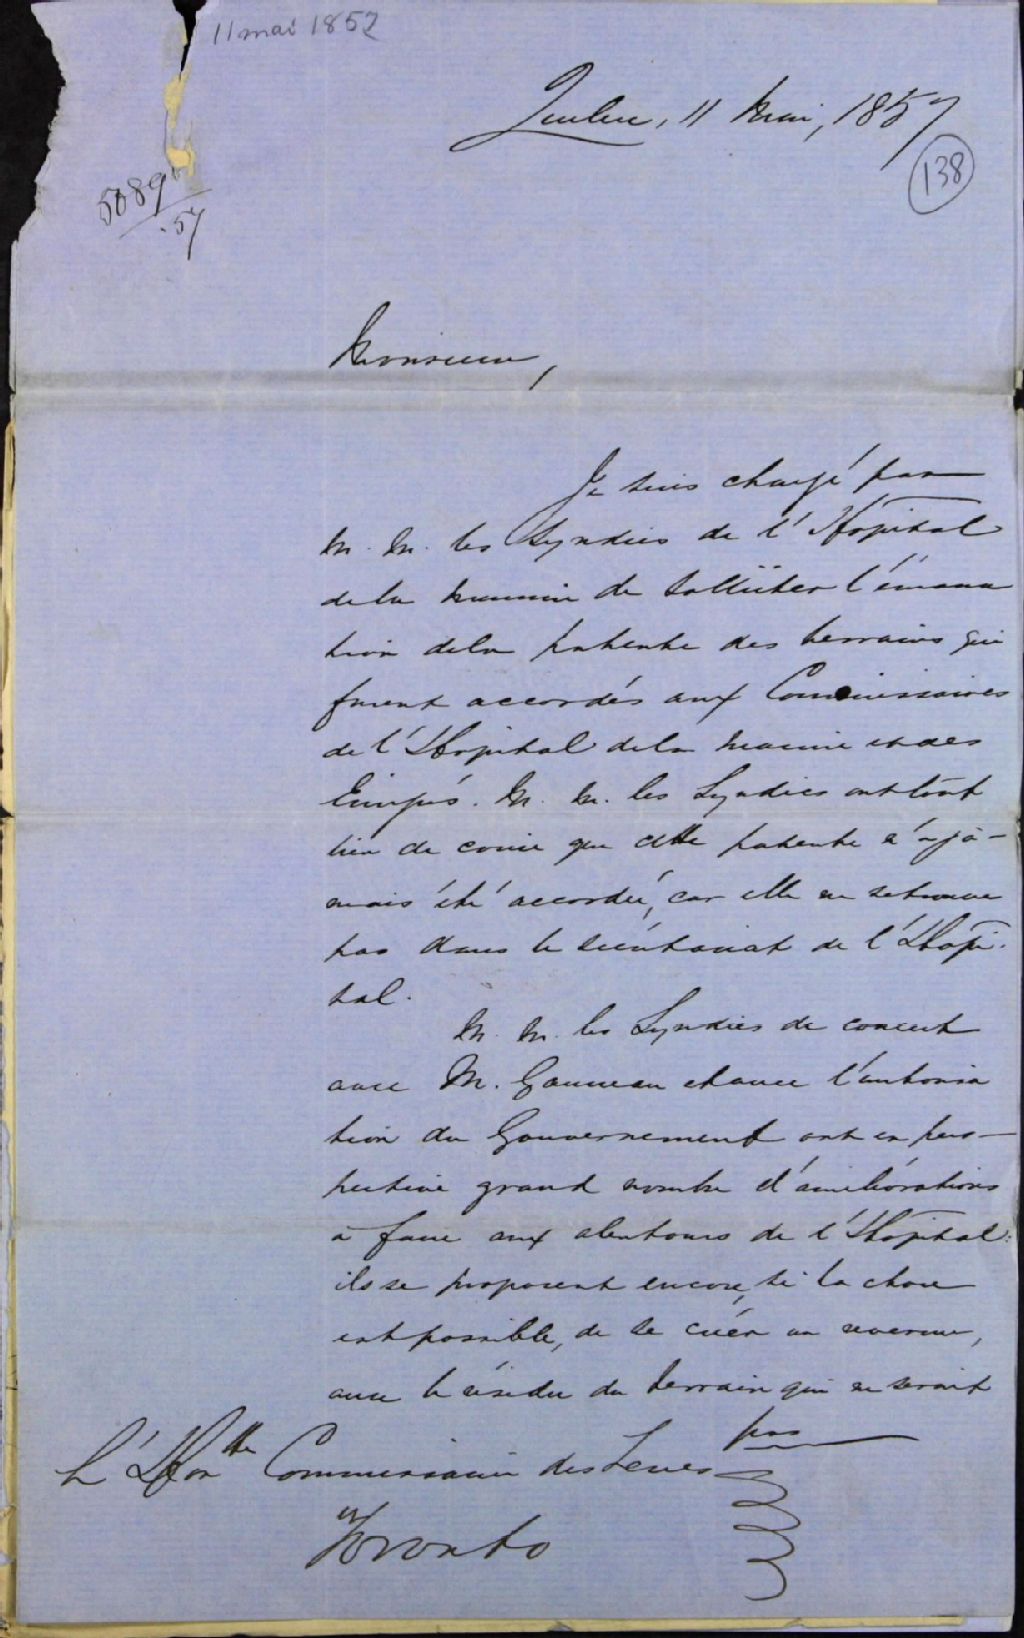 11 mai 1857
Québec, 11 Mai, 1857
138
5089
.57
Monsieur,
Je suis chargé par
M. M. les Syndics de l'Hôpital
de la Marine de solliciter l'émana
tion de la patente des terrains qui
furent accordés aux Commissaires
de l'Hôpital de la Marine et des
Emigrés. M. M. les Syndics ont tout
lieu de croire que cette patente n'a ja-
mais été accordée, car elle ne se trouve
pas dans le secrétariat de l'Hôpi-
tal.
M. M. les Syndics de concert
avec M. Gauvreau et avec l'autorisa
tion du Gouvernement ont en pers-
pective grand nombre d'améliorations
à faire aux alentours de l'Hôpital:
ils se proposent encore, si la chose
est possible, de se créer un revenu,
avec le résidu du terrain qui ne serait
pas
L'Honble Commissaire des Terres
Toronto